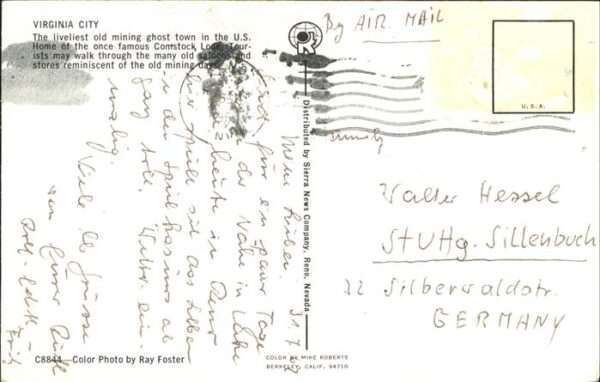 VIRGINIA CITY
The liveliest old mining ghost town in the U.S.
Home of the once famous Comstock Lode. Tour-
ists may walk through the many old saloons and
stores reminiscent of the old mining days.
By AIR MAIL
U.S.A.
Distributed by Sierra News Company, Reno, Nevada
Meine Lieben
sind für ein paar Tage
in der Nähe in
heute in Reno
spielt sich das Leben
in den Spielkasinos ab
ganz toll.
malig.
Viele lb Grüsse
von Eurer
Walter Hessel
Stuttg. Sillenbuch
22 Silberwaldstr.
GERMANY
C8844 Color Photo by Ray Foster
COLOR BY MIKE ROBERTS
BERKELEY, CALIF. 94710